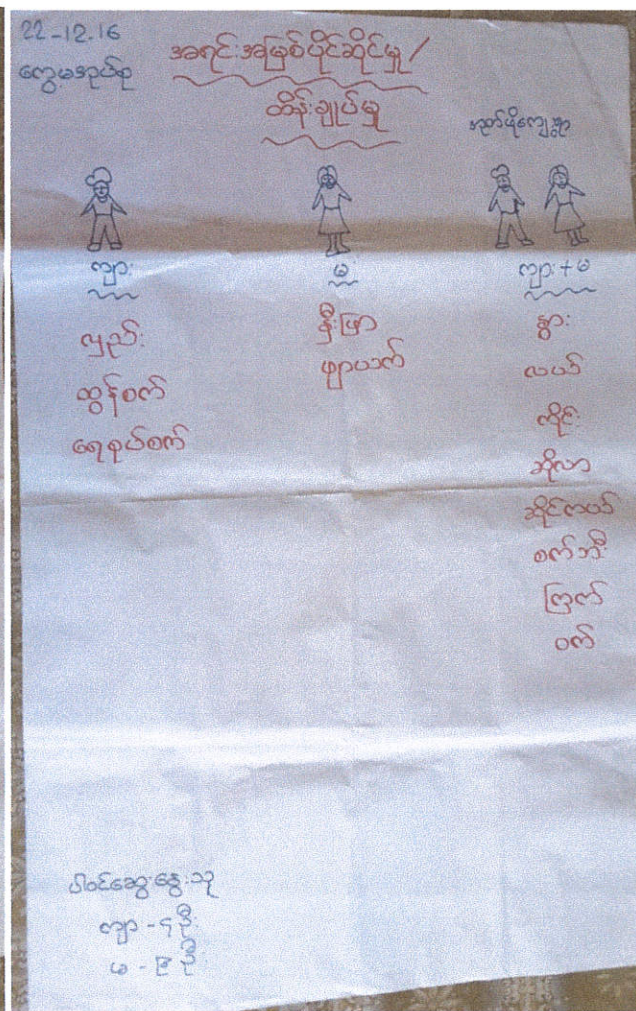 22-12-16
ကွေ့မအုပ်စု
အရင်းအမြစ်ပိုင်ဆိုင်မှု/
ထိန်းချုပ်မှု
အုတ်ဖိုကျေးရွာ
ကျား
မ
ကျား+မ
လှည်း
ထွန်စက်
ရေစုပ်စက်
နှီးဖြာ
ဖျာယက်
နွား
လယ်
ကိုင်း
ဆိုလာ
ဆိုင်ကယ်
စက်ဘီး
ကြက်
ဝက်
ပါဝင်ဆွေးနွေးသူ
ကျား - ၄ဦး
မ - ၉ ဦး